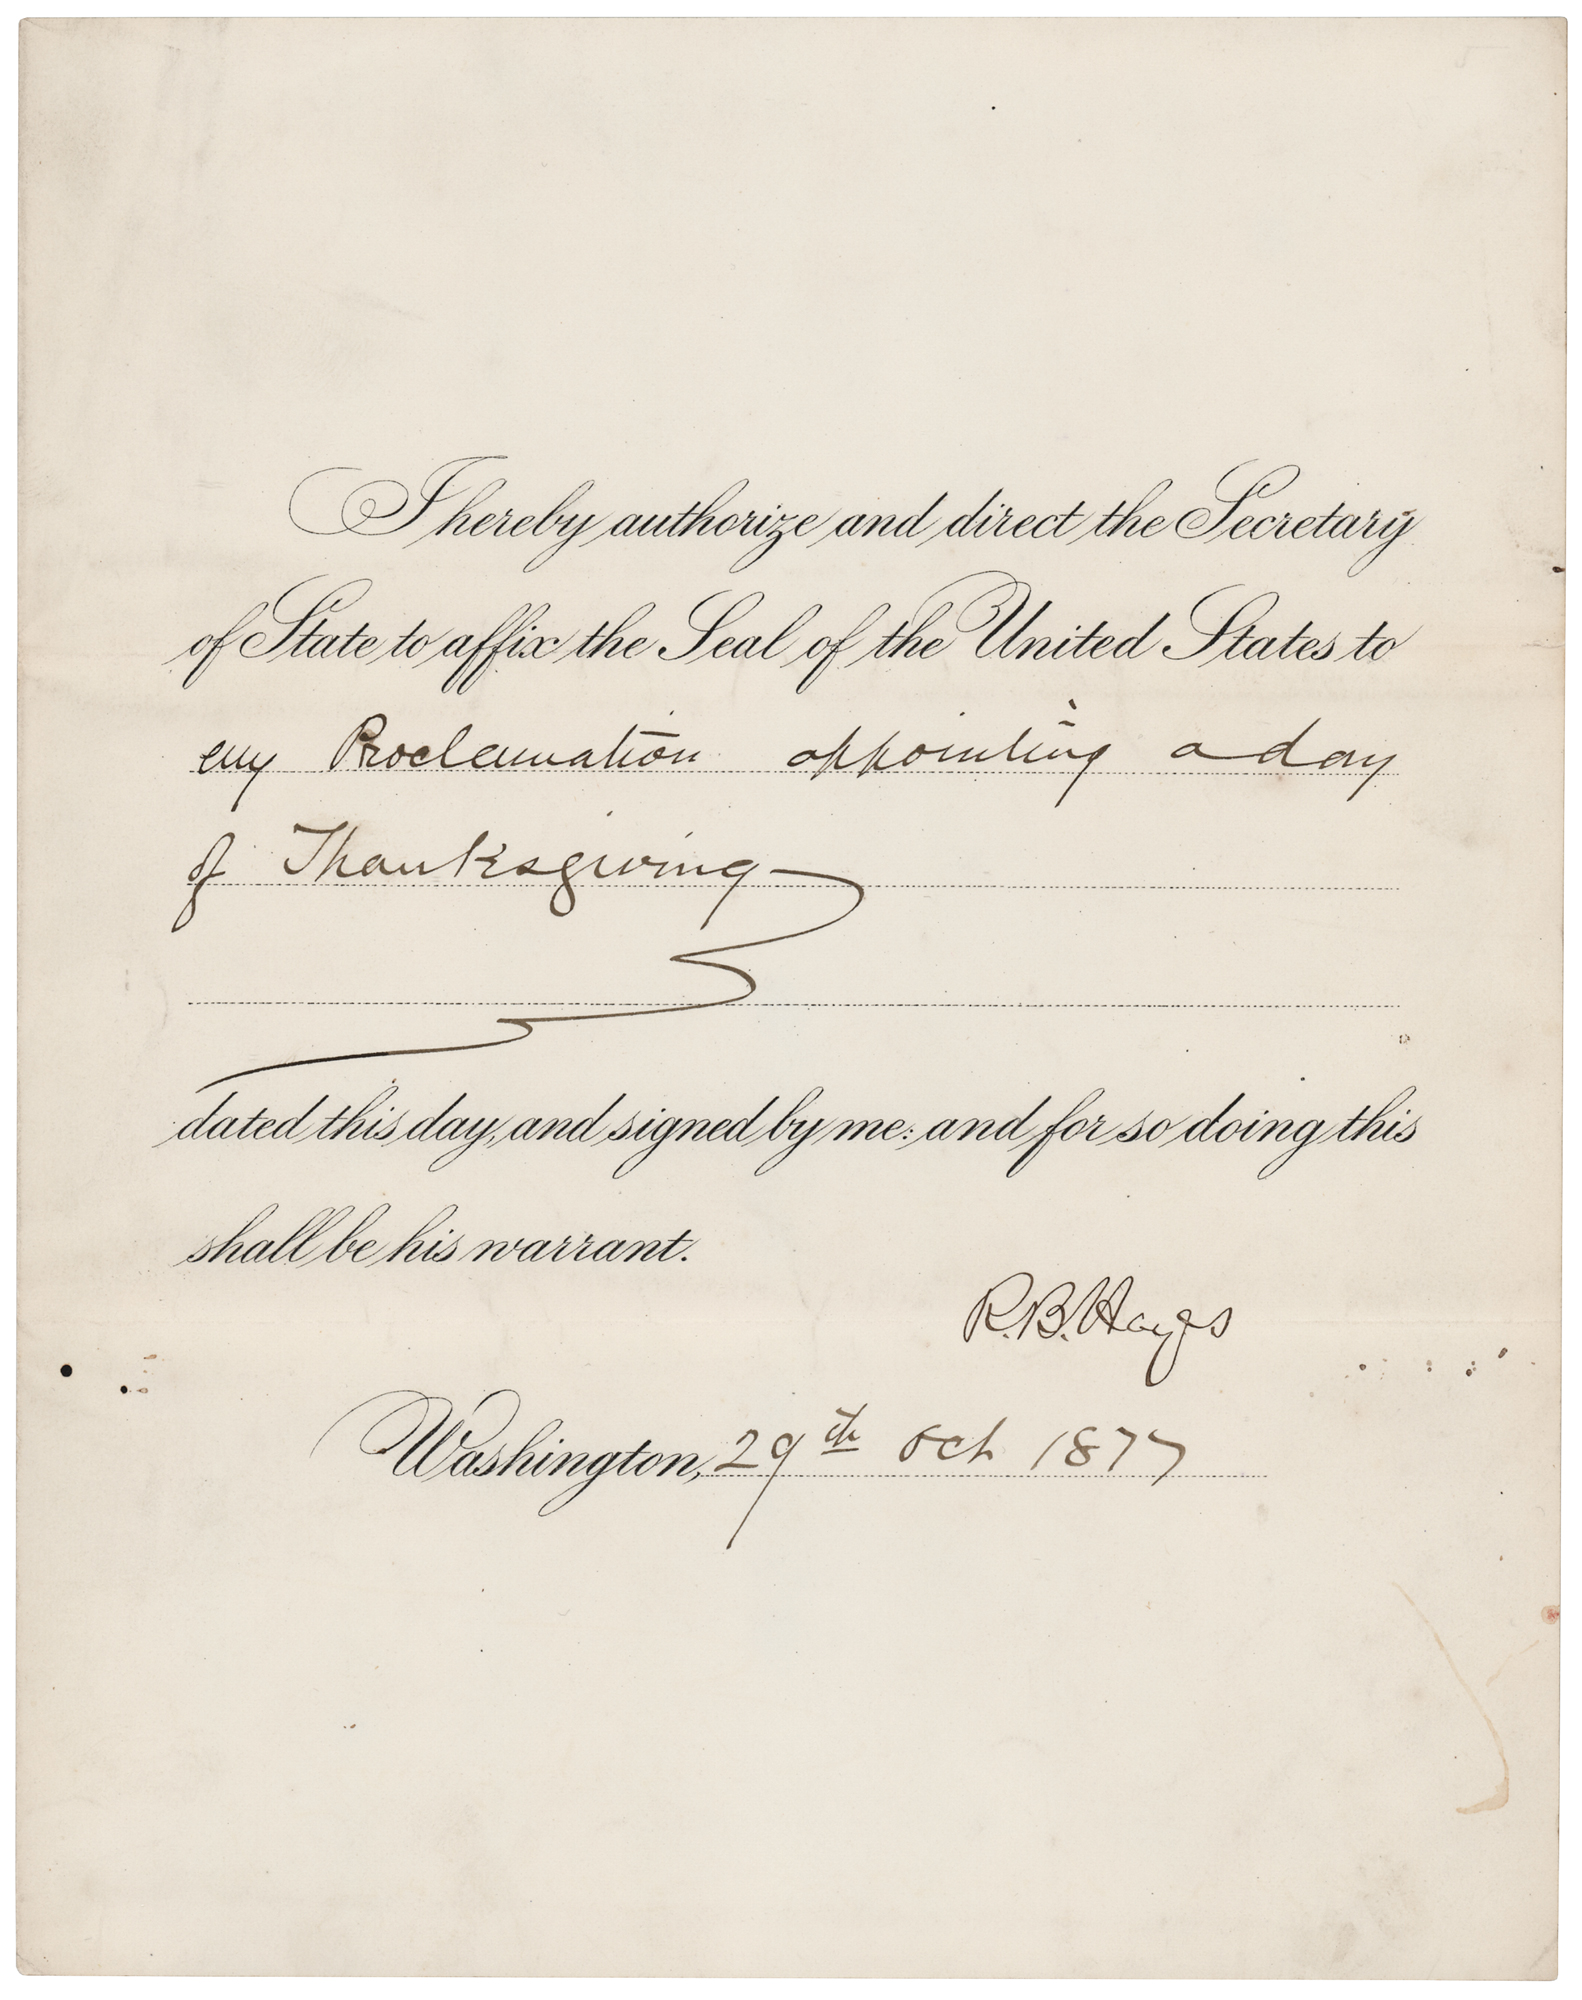 I hereby authorize and direct the Secretary
of State to affix the Seal of the United States to
my Proclamation appointing a day
of Thanksgiving
dated this day, and signed by me: and for so doing this
shall be his warrant.
R. B. Hayes
Washington, 29th Oct 1877